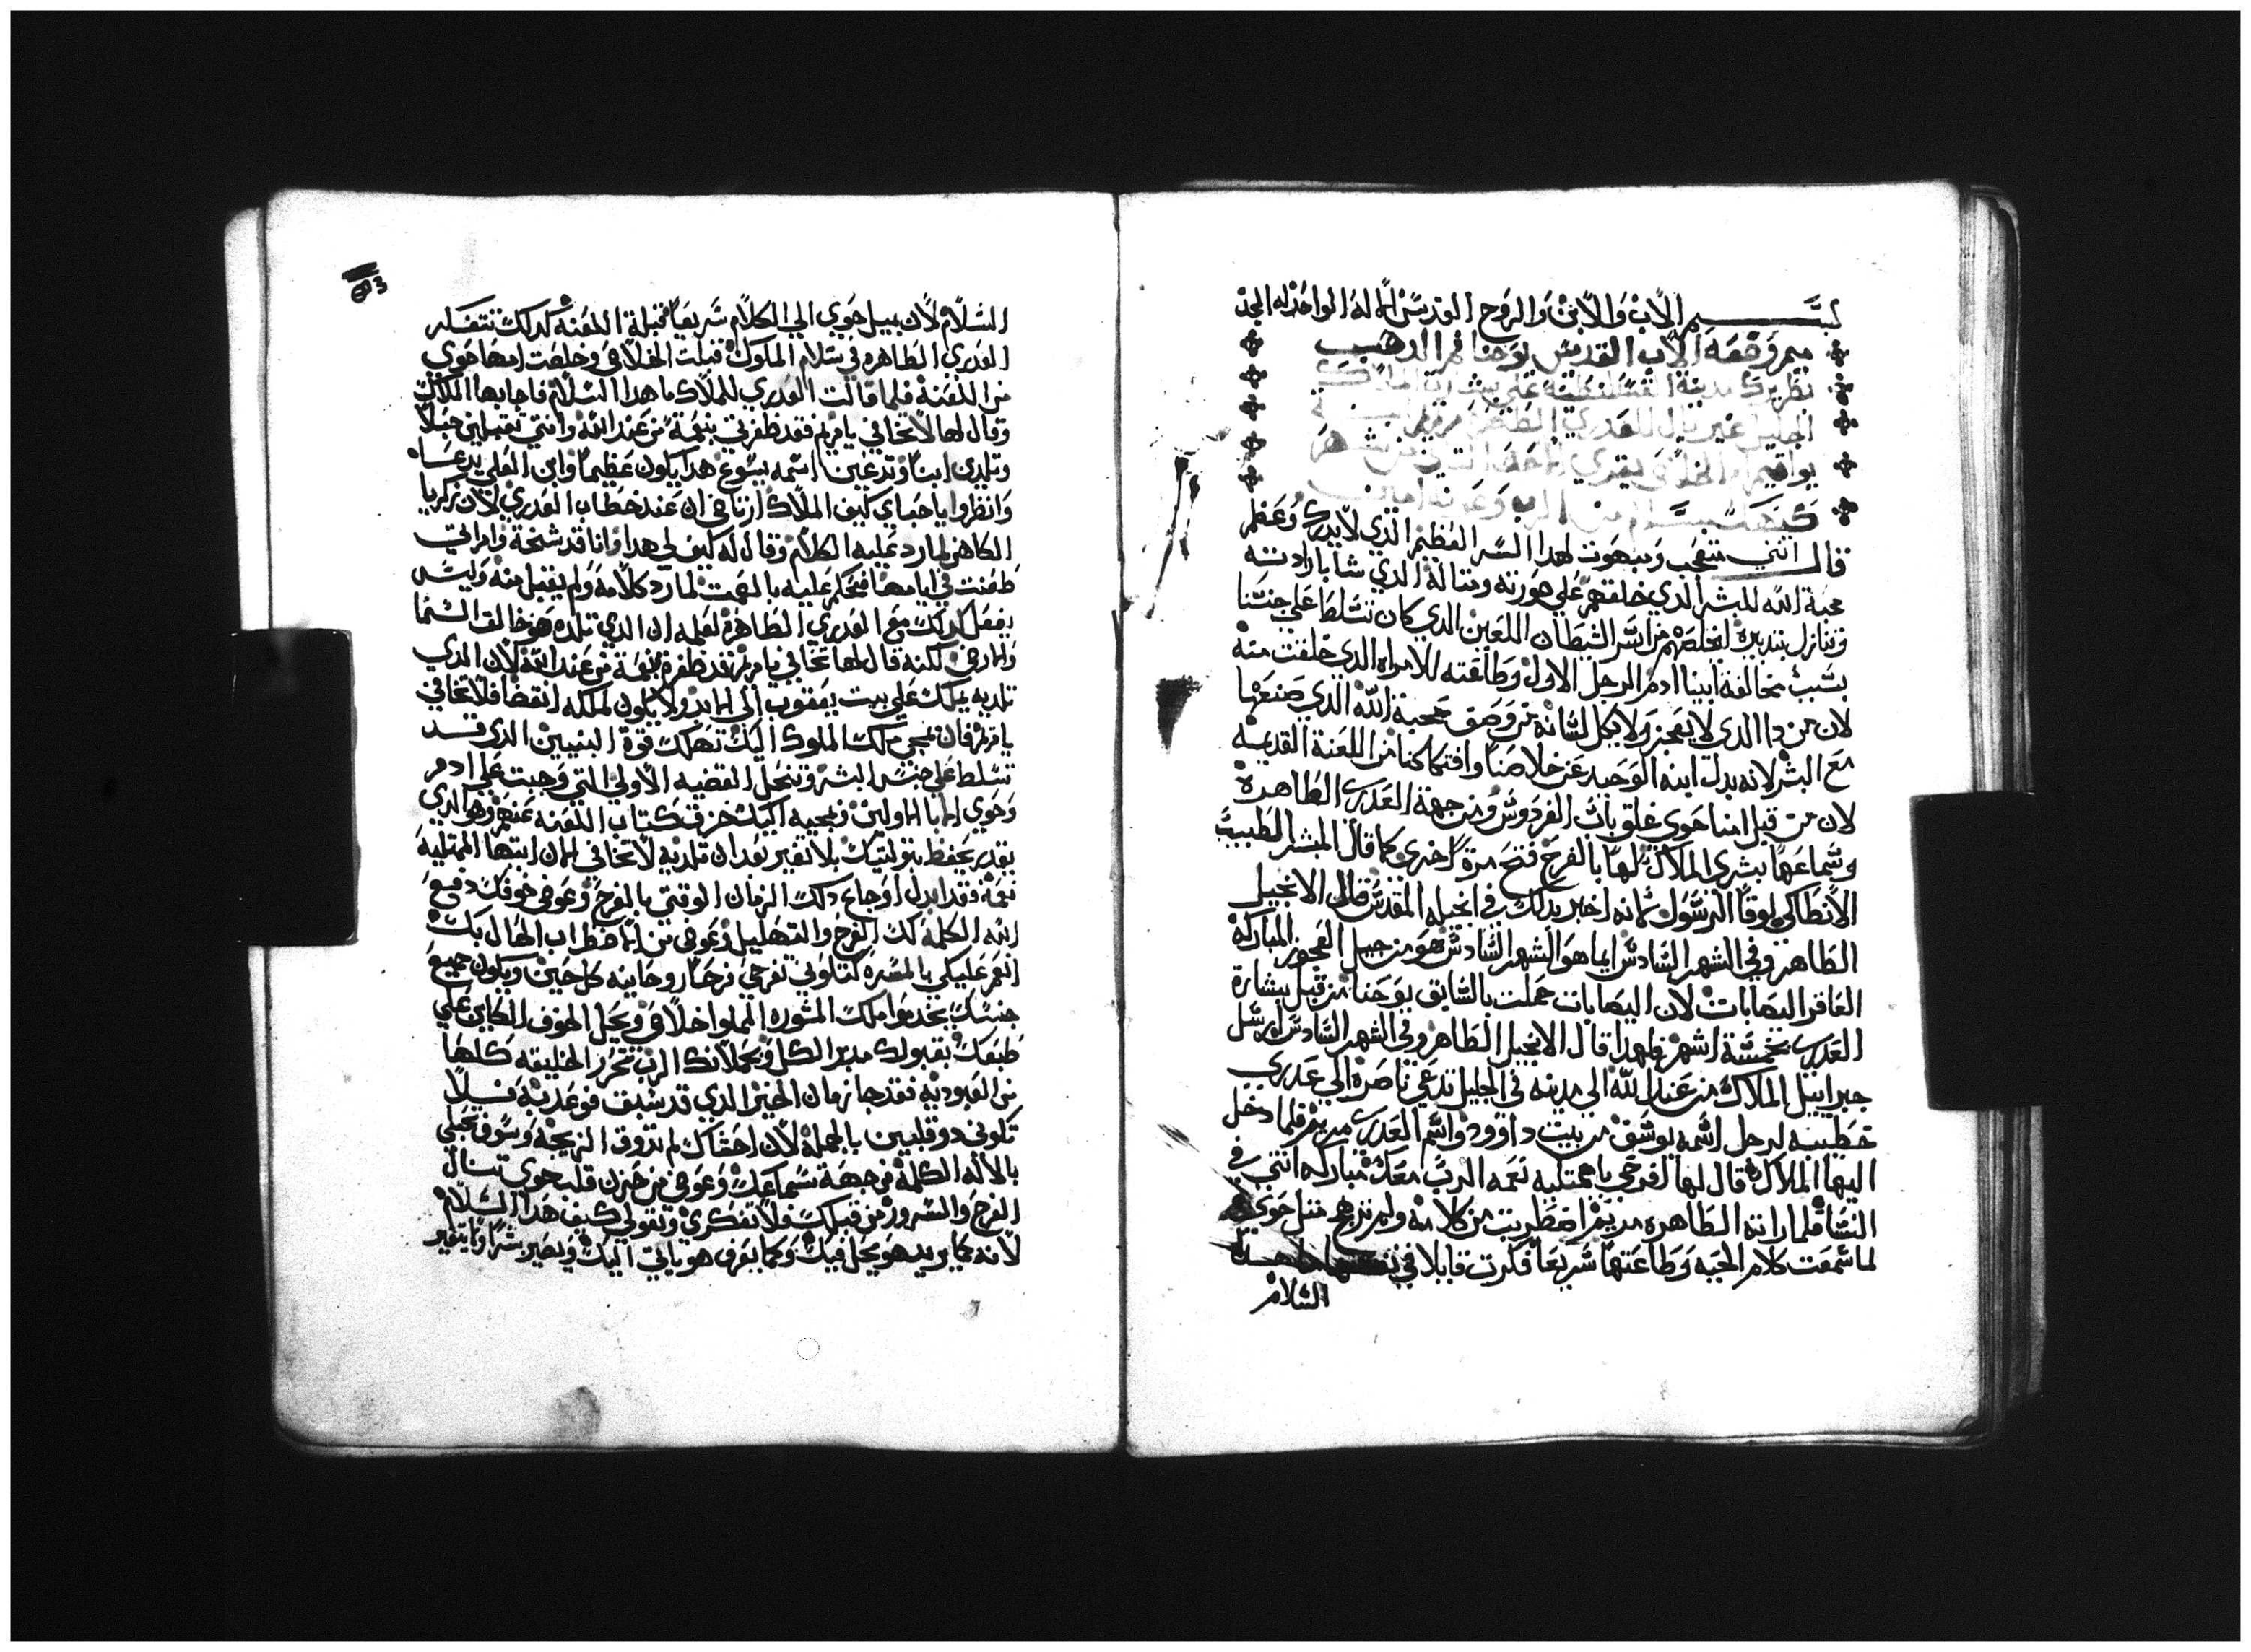 بســــم الاب والابن والروح القدس الاله الواحد له المجد
ميمر وضعه الاب القديس يوحنا فم الدهب
بطريرك مدينة القسطنطنيه على بشارة الملاك
الجليل غبريال للعدري الطاهره مريم
بواقيم الخلاص يقري الاحد التاني من شهر
كيهك بسلام من الرب وعونه امين
قال انني متعجب ومبهوت لهدا السر العظيم الذي لا يدرك وعظم
محبة الله للبشر الدي خلقهم على صورته ومتاله الدي شا بارادته
وتنازل بتدبيره لخلصهم من اسر الشيطان اللعين الدي كان تسلط علي جنسنا
بسبب مخالفة ابينا ادم الرجل الاول وطاعته للامراه الدي خلقت منه
لان من دا الدي لا يعجز ولا يكل لسانه من وصف محبة الله الذي صنعها
مع البشر لانه بدل ابنه الوحيد عن خلاصنا وافتكاكنا من اللعنة القديمه
لان من قبل امنا حوي غلق باب الفردوس ومن جهة العدري الطاهرة
وسماعها بشري الملاك لها بالفرح فتح مرة اخري كما قال المبشر الطبيب
الانطاكي لوقا الرسول لانه اخبر بدلك في انجيله المقدس قال الانجيل
الطاهر وفي الشهر السادس ايما هو الشهر السادس هو من حبل العجوز المباركه
العاقر اليصابات لان اليصابات حملت بالسابق يوحنا من قبل بشارة
العدري بخمسة اشهر فلهدا قال الانجيل الطاهر وفي الشهر السادس ارسل
جبراييل الملاك من عند الله الى مدينه في الجليل تدعي ناصرة الي عدري
خطيبه لرجل اسمه يوسف من بيت داوود واسم العدري مريم فلما دخل
اليها الملاك قال لها افرحي يا ممتليه نعمه الرب معك مباركه انتي في
النسا فلما راته الطاهره مريم اضطربت من كلامه ولم تزهج متل حوي
لما سمعت كلام الحيه وطاعتها سريعا فكرت قايلا في نفسها ما هدا
السلام
السلام لان بميل حوي الي الكلام سريعا فقبلة اللعنه لدلك تتفكر
العدري الطاهره في سلام الملوك قبلت الخلاص وخلصت امها حوي
من اللعنة فلما قالت العدري للملاك ما هدا السلام فاجابها الملاك
وقال لها لا تخافي يا مريم فقد ظفرتي بنعمة من عند الله وانتي تقبلين حبلا
وتلدي ابنا وتدعين اسمه يسوع هدا يكون عظيما وابن العلي يدعا
وانظروا يا احباي كيف الملاك ارتاض ان عند خطاب العدري لان زكريا
الكاهن لما رد عليه الكلام وقال له كيف لي هدا وانا قد شخة وامراتي
طعنت في ايامها فحكم عليه بالصمت لما رد كلامه ولم يقبل منه وليس
يفعل كدلك مع العدري الطاهرة لعلمه ان الدي تلده هو خالق السما
والارض لكنه قال لها لا تخافي يا مريم قد ظفرة بنعمة من عند الله لان الدي
تلديه يملك علي بيت يعقوب الي الابد ولا يكون لملكه انقضا فلا تخافي
يا مريم فان بمجي ملك الملوك اليك تهلك قوة البنيين الدي قد
تسلط علي جنس البشر وتنحل القضيه الاولي التي وجبت علي ادم
وحوي الابا الاولين وبمجيه اليك خزق كتاب اللعنه عنهم وهو الدي
يقدر يحفظ بتوليتك بلا تغير بعد ان تلديه لا تخافي الان ايتها الممتليه
نعمة فقد ابدل اوجاع دلك الزمان الوقتي بالفرح وعوض خوفك دفع
الله الكلمة لك الفرح والتهليل وعوض من الاضطراب الحال بك
انعم عليكي بالمسره لتكوني تفرحي فرحا روحانيه كل حين ويكون جميع
جنسك يخدموا ملك المشوره المملوا خلاص ويحل الخوف الكاين علي
طبعك بقبولك مدبر الكل وبحملانك الرب تحرر الخليقه كلها
من العبوديه فقد جا زمان الخير الدي قد سبق فوعد به فلا
تكوني دو قلبين بالجملة لان احشاك لم تدوق الزيجه وسوف تحبلي
بالاله الكلمة من جهة سماعك وعوض من حزن قلب حوي تنال
الفرح والسرور من قبلك فلا تفكري وتقولي كيف هدا السلام
لانه كما يريد هو يحل فيك وكما يعرف هو ياتي اليك ويصير بشرا ولا يتغير